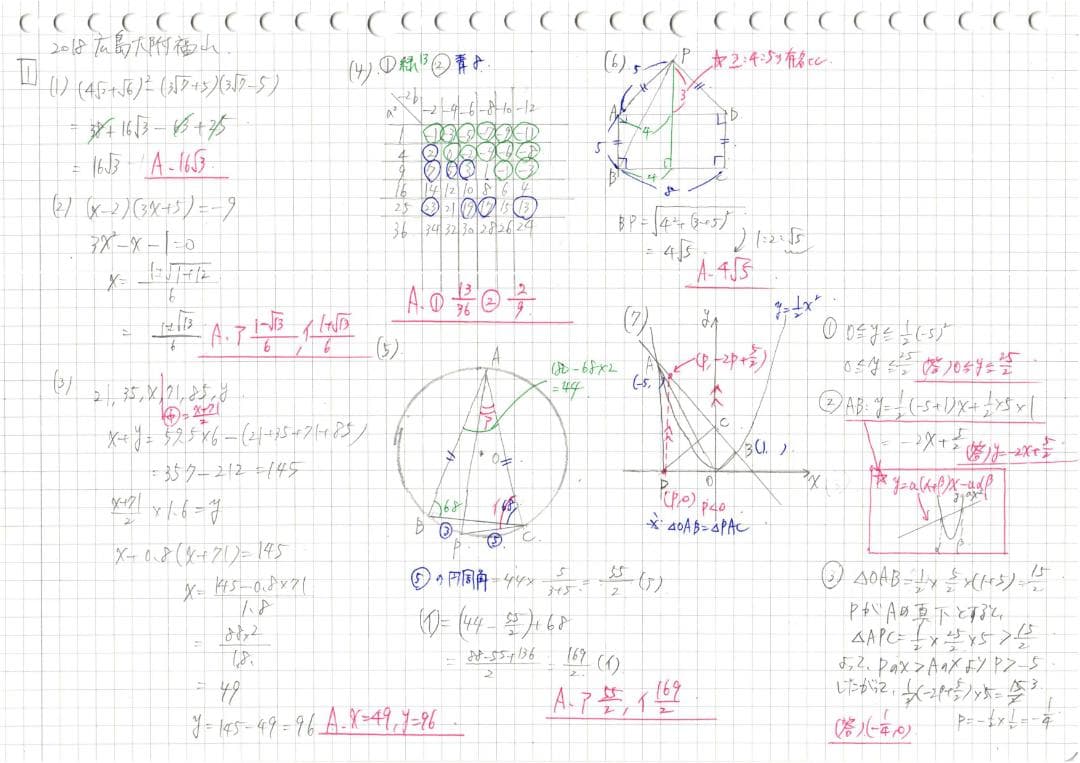 2018 広島大附福山.
1
(1) (4√3+√6)² - (3√7+5)(3√7-5)
+16√3 -
= 16√3 A. 16√3
(2) (x-2)(3x+5) = -9
3x²-x-1=0
x= 1±√1+12 / 6
= 1±√13 / 6 A. ア 1-√13 / 6, イ 1+√13 / 6
(3)
21, 35, x, 71, 85, y
中 = x+71 / 2
x+y = 59.5×6-(21+35+71+85)
= 357-212 = 145
x+71 / 2 × 1.6 = y
x+0.8(x+71) = 145
x = 145-0.8×71 / 1.8
= 88.2 / 1.8
= 49
y = 145-49 = 96 A. x=49, y=96
(4) ① 緑13 ② 青8
a² -2b -2 -4 -6 -8 -10 -12
1 -1 -3 -5 -7 -9 -11
4 2 0 -2 -4 -6 -8
9 7 5 3 1 -1 -3
16 14 12 10 8 6 4
25 23 21 19 17 15 13
36 34 32 30 28 26 24
A. ① 13/36 ② 2/9
(5)
A
180-68×2
=44
ア
O
68
イ 68
B
③
P
⑤
C
⑤の円周角 = 44× 5 / 3+5 = 55/2 (ア)
(イ) = (44 - 55/2) + 68
= 88-55+136 / 2 = 169/2 (イ)
A. ア 55/2, イ 169/2
(6)
P
☆ 3:4:5は有名
5
3
A
D
4
5
4
B
C
8
BP = √4²+(3+5)²
= 4√5
1:2:√5
A. 4√5
(7)
y
y=½x²
(P, -2P+5/2)
A
(-5, )
C
B(1, )
P
O
x
(P,0) P<0
※ △OAB=△PAC
① 0≦y≦½(-5)²
0≦y≦25/2 (答) 0≦y≦25/2
② AB: y=½(-5+1)x+½×5×1
= -2x+5/2
(答) y=-2x+5/2
☆ y=a(α+β)x-aαβ
y=ax²
α
β
③ △OAB=½×5/2×(1+5)=15/2
PがAの真下とすると、
△APC=½×25/2×5>15/2
よって、Pのx>Aのxより P>-5
したがって、½(-2P+5/2)×5=15/2
P=-½×½=-¼
(答) (-¼,0)